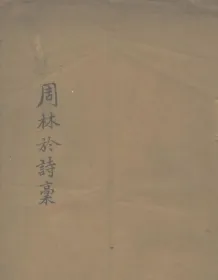 周林於詩稾